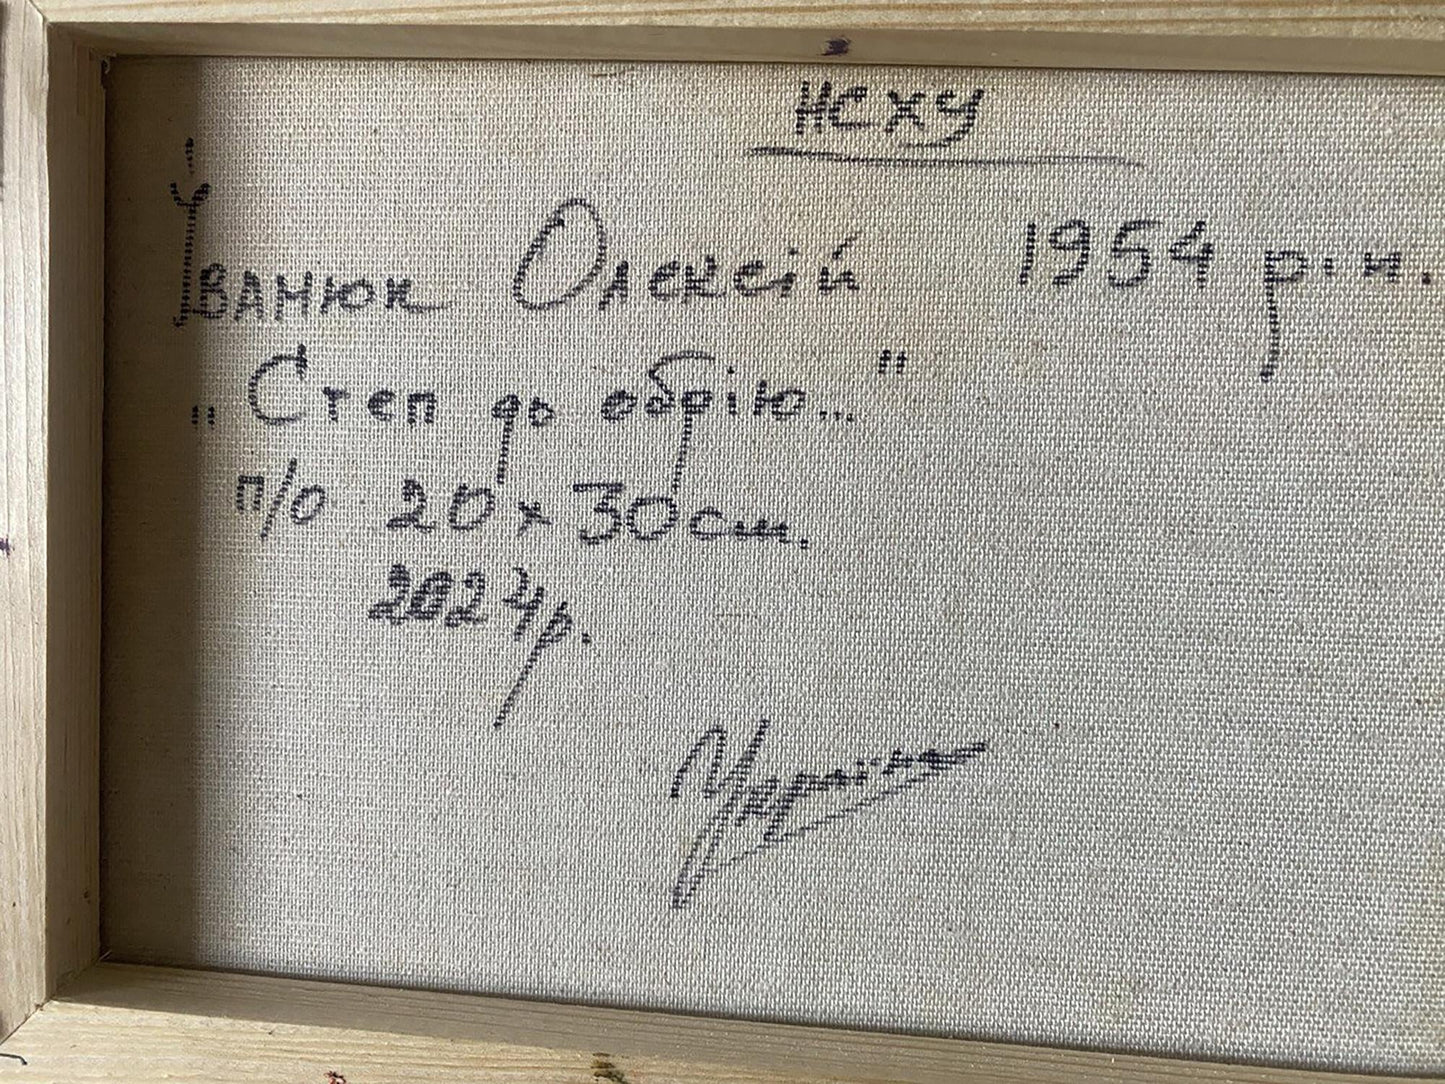 НСХУ
Іванюк Олексій 1954 р.н.
„Степ до обрію..."
п/о 20х30см.
2024р.
Україна